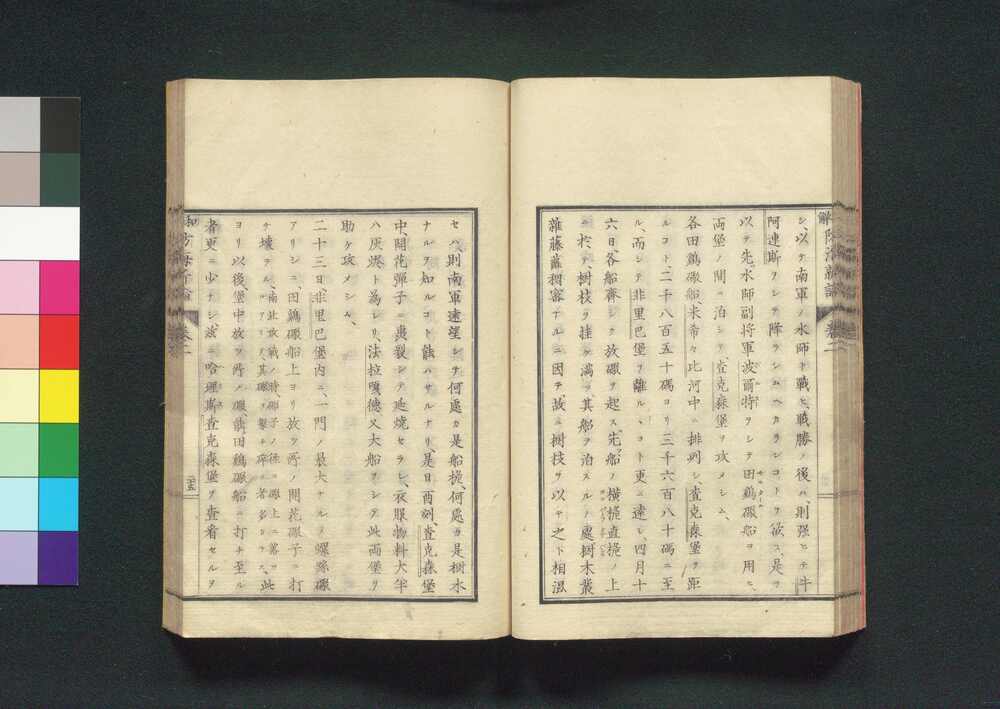 シ、以テ南軍ノ水師ト戰ヒ、戰勝ノ後ハ、則强ヒテ牛
阿連斯ヲシテ降ラシムヘカランコトヲ欲ス、是ヲ
以テ先、水師副将軍波爾特ヲシテ田鷄礮船ヲ用ヒ、
両堡ノ間ニ泊シテ査克森堡ヲ攻メシム、
各田鷄礮船、米希々比河中ニ排列シ、査克森堡ヲ距
ルコト二千八百五十碼ヨリ三千六百八十碼ニ至
ル、而シテ非里巴堡ヲ離ルヽコト更ニ遠シ、四月十
六日、各船齊シク放礮ヲ起ス、先船ノ横桅直桅ノ上
ニ於テ樹枝ヲ挂ケ満ツ、其船ヲ泊スルノ處、樹木叢
雜藤蘿稠密ナルニ因テ、故ニ樹枝ヲ以テ之ト相混
セハ、則南軍遠望シテ何處カ是船桅、何處カ是樹木
ナルヲ知ルコト能ハサルナリ、是日酉刻、査克森堡
中、開花彈子ニ轟裂シテ延燒セラレ、衣服物料大半
ハ灰燼ト為レリ、法拉嗄德又大船ヲシテ此両堡ヲ
助ケ攻メシム、
二十三日、非里巴堡内ニ、一門ノ最大ナルノ螺絲礮
アリシニ、田鷄礮船上ヨリ放ツ所ノ開花礮子ニ打
チ壊ラル、南北放戰ノ時、礮子ノ徑ニ礮上ニ落ツルアリテ、其礮ヲ撃チ碎ク者多クアラス、此
ヨリ以後、堡中放ツ所ノ礮、前田鷄礮船ニ打チ至ル
者更ニ少ナシ、茲ニ哈理斯査克森堡ヲ査看セルヲ
卷二
卷二